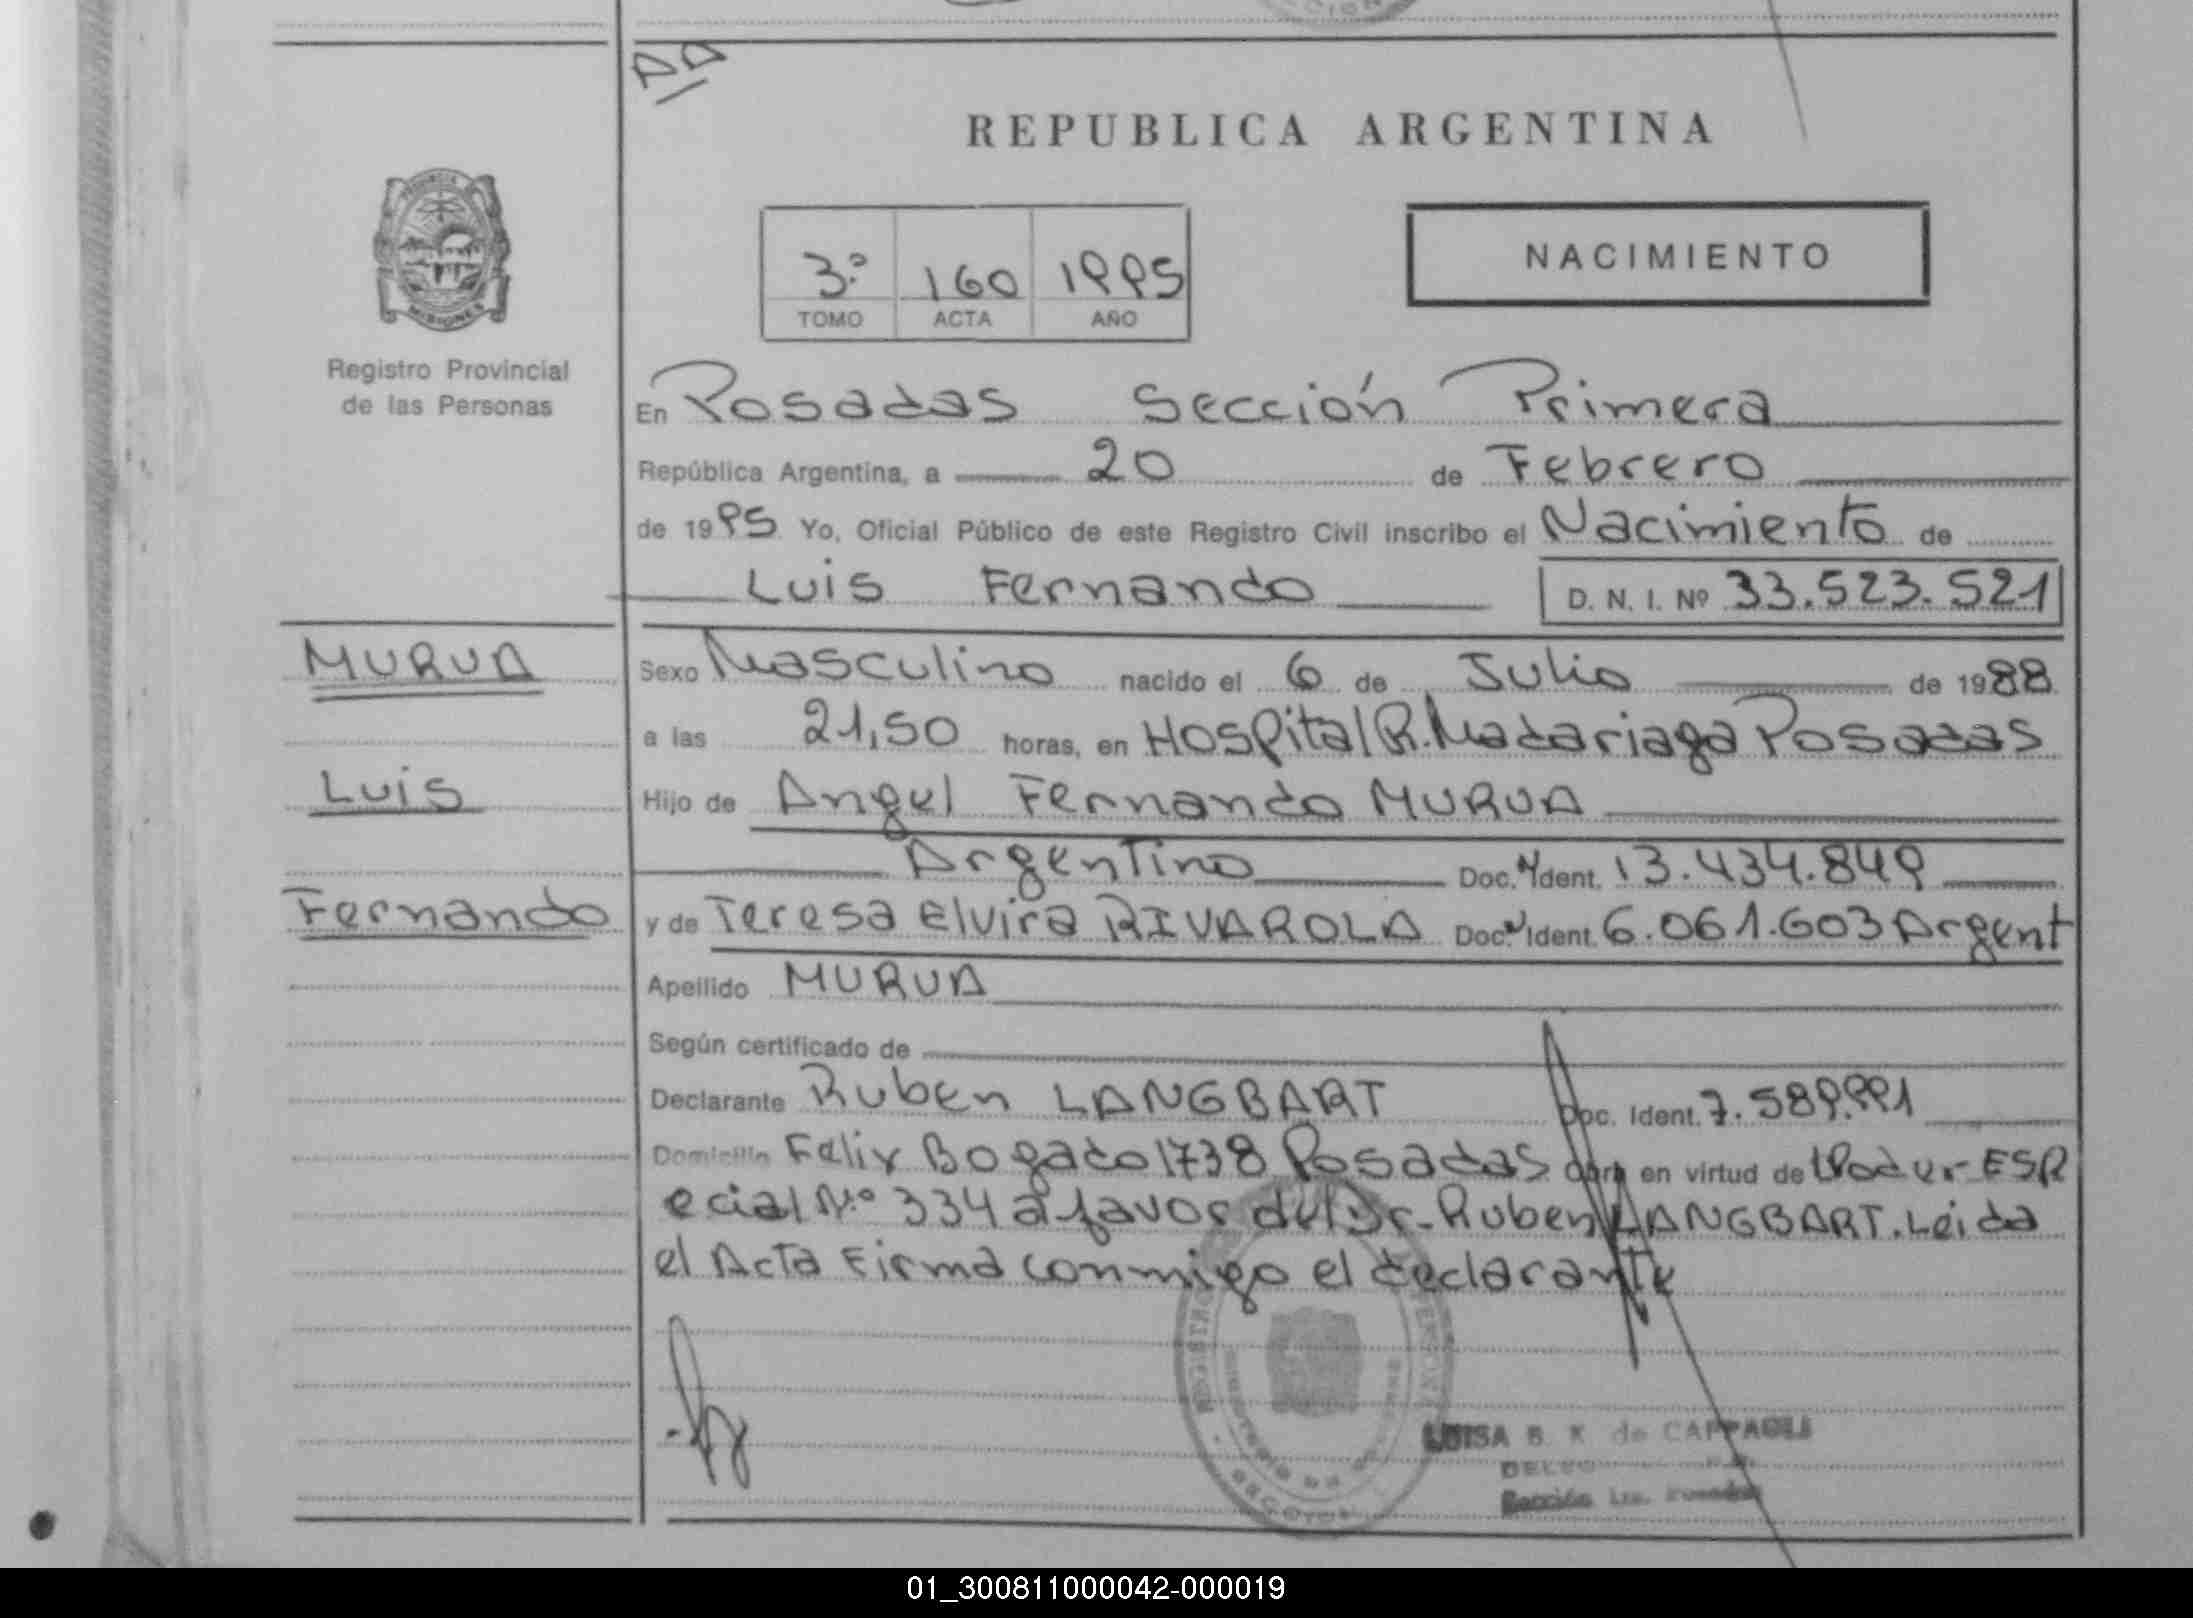 REPUBLICA ARGENTINA
NACIMIENTO
3º 160 1995
TOMO ACTA AÑO
MISIONES
Registro Provincial
de las Personas
En Posadas Sección Primera
República Argentina, a 20 de Febrero
de 1995 Yo, Oficial Público de este Registro Civil inscribo el Nacimiento de
Luis Fernando D. N. I. Nº 33.523.521
MURUA
Luis
Fernando
Sexo Masculino nacido el 6 de Julio de 1988
a las 21,50 horas, en Hospital R. Madariaga Posadas
Hijo de Angel Fernando MURUA
Argentino Doc. Ident. 13.434.849
y de Teresa Elvira RIVAROLA Doc. Ident. 6.061.603 Argent
Apellido MURUA
Según certificado de
Declarante Ruben LANGBART Doc. Ident. 7.589.991
Domicilio Felix Bogado 1738 Posadas Obra en virtud de Poder ESP
ecial Nº 334 a favor del Dr. Ruben LANGBART. Leida
el Acta Firma conmigo el declarante
LUISA B. K. de CAPPAGLI
Sección 1ra. Posadas
01_300811000042-000019